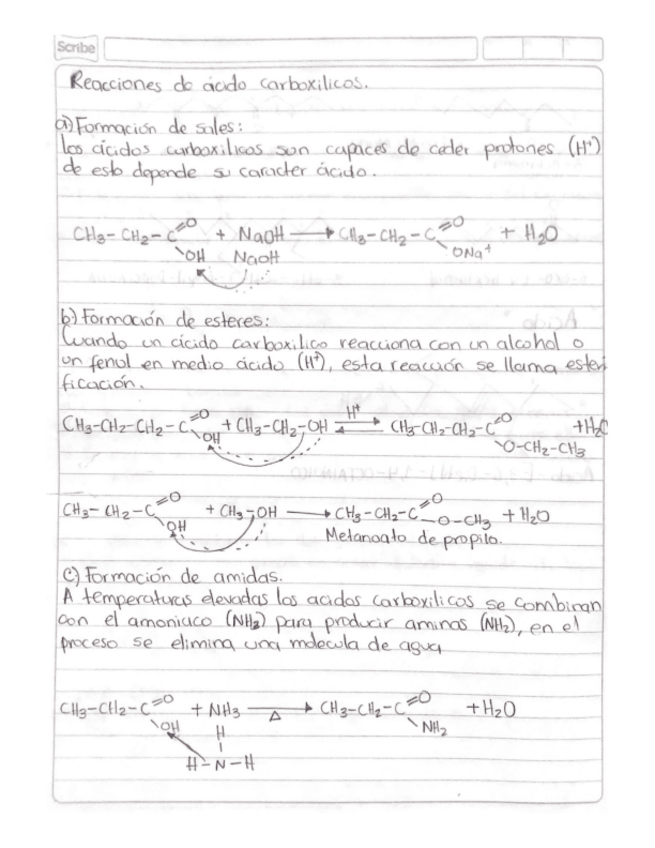 Scribe
Reacciones de ácido carboxilicos.
a) Formación de sales:
los ácidos carboxilicos son capaces de ceder protones (H⁺)
de esto depende su caracter ácido.
CH₃-CH₂-C=O + NaOH → CH₃-CH₂-C=O + H₂O
OH NaOH ONa⁺
b) Formación de esteres:
Cuando un ácido carboxilico reacciona con un alcohol o
un fenol en medio ácido (H⁺), esta reacción se llama esteri
ficación.
H⁺
CH₃-CH₂-CH₂-C=O + CH₃-CH₂-OH ⇌ CH₃-CH₂-CH₂-C=O + H₂O
OH O-CH₂-CH₃
CH₃-CH₂-C=O + CH₃-OH → CH₃-CH₂-C=O-O-CH₃ + H₂O
OH Metanoato de propilo.
c) Formación de amidas.
A temperaturas elevadas los acidos carboxilicos se combinan
con el amoniaco (NH₂) para producir aminas (NH₂), en el
proceso se elimina una molecula de agua
CH₃-CH₂-C=O + NH₃ → CH₃-CH₂-C=O + H₂O
OH Δ NH₂
H
H-N-H